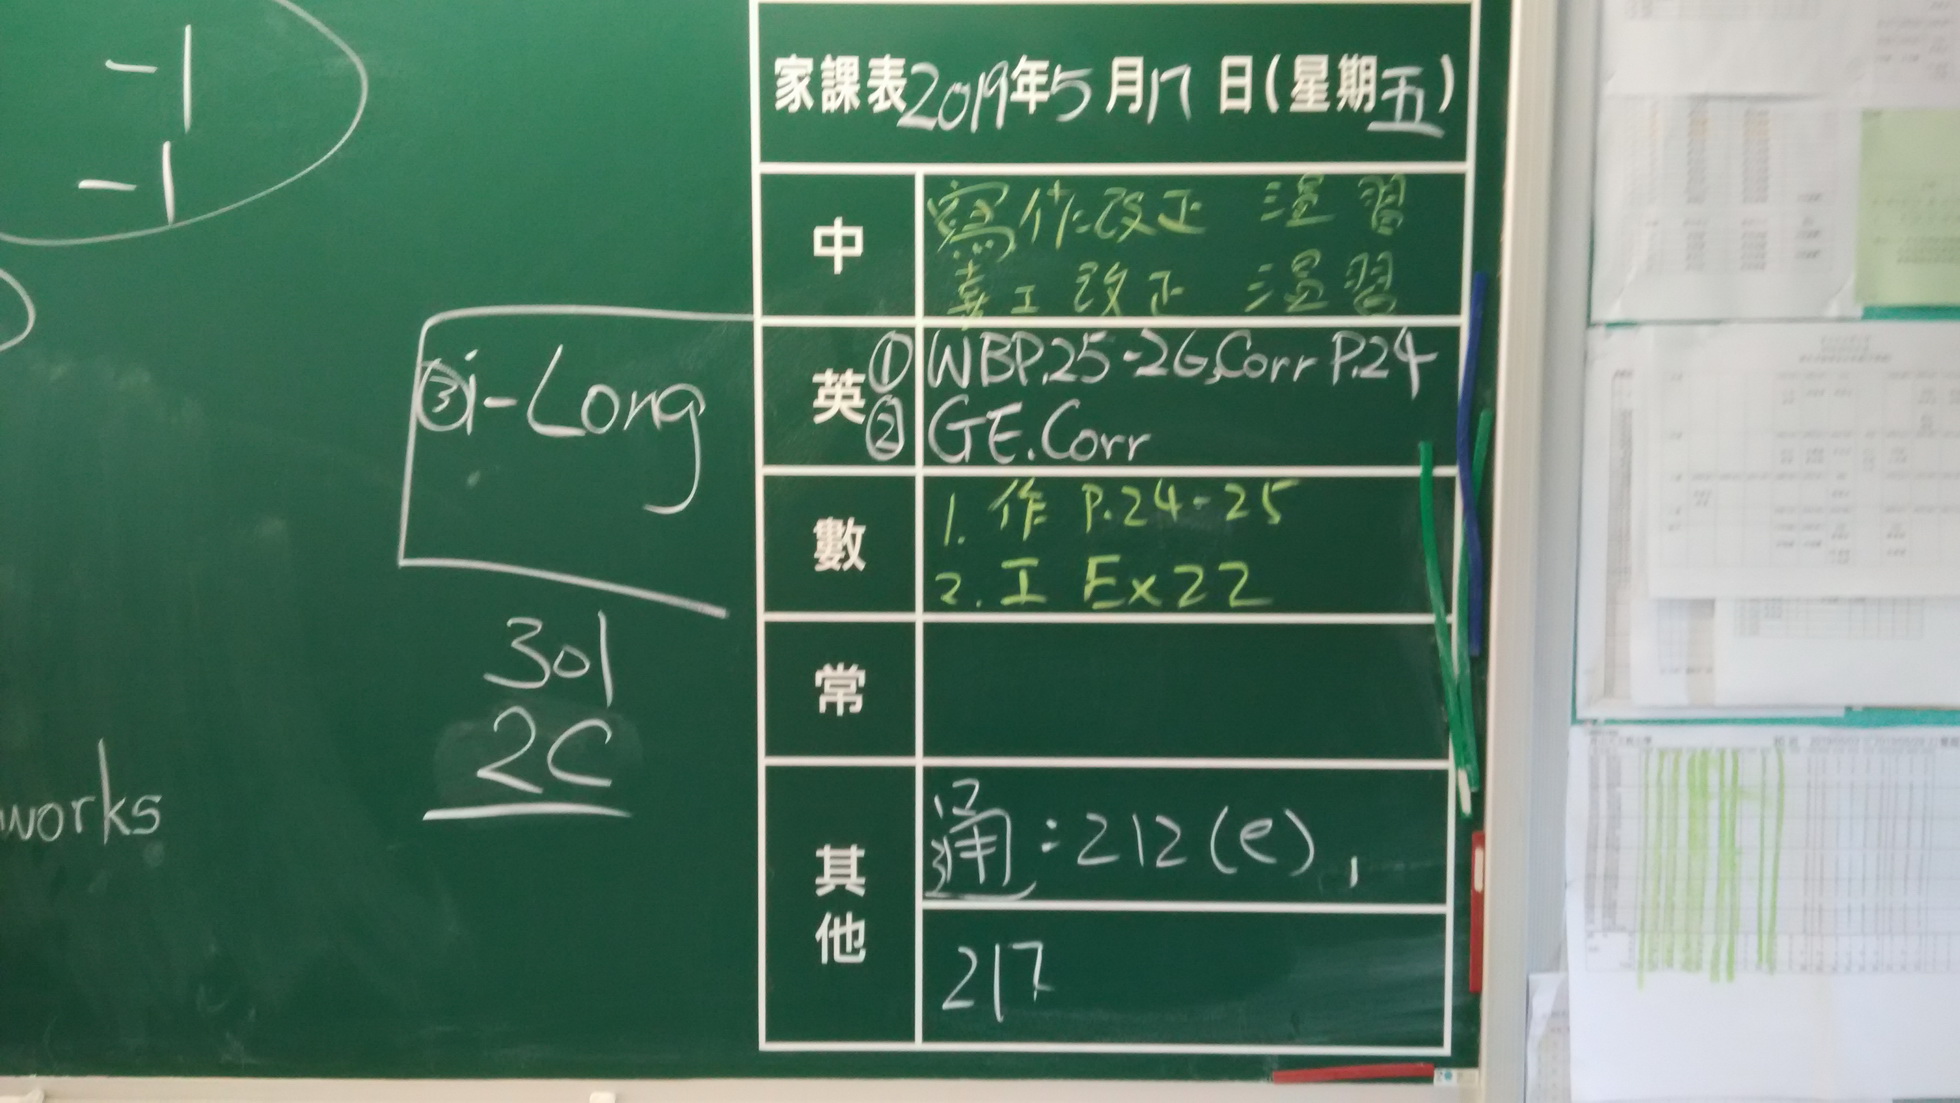 -1
-1
家課表2019年5月17日(星期五)
中
寫作改正 溫習
工改正 溫習
英
① WBP.25-26,Corr P.24
② GE.Corr
③ i-Long
數
1. 作 P.24-25
2. 工 Ex22
301
2C
常
works
其他
通:212(e),
217